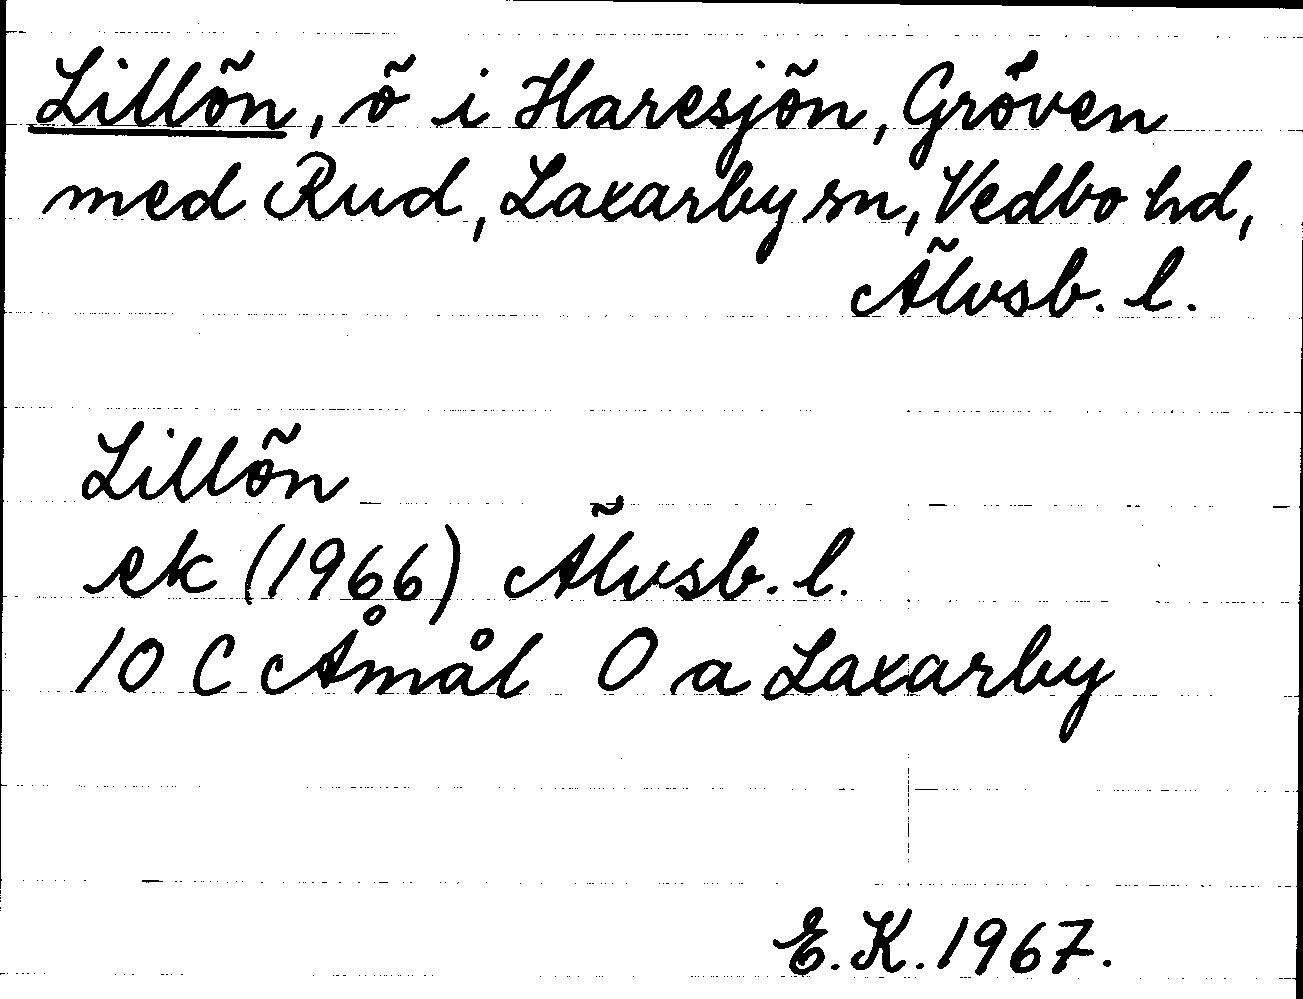 Lillön, ö i Haresjön, Gröven
med Rud, Laxarby sn, Vedbo hd,
Älvsb. l.
Lillön
ek (1966) Älvsb. l.
10 C Åmål O a Laxarby
E.K. 1967.